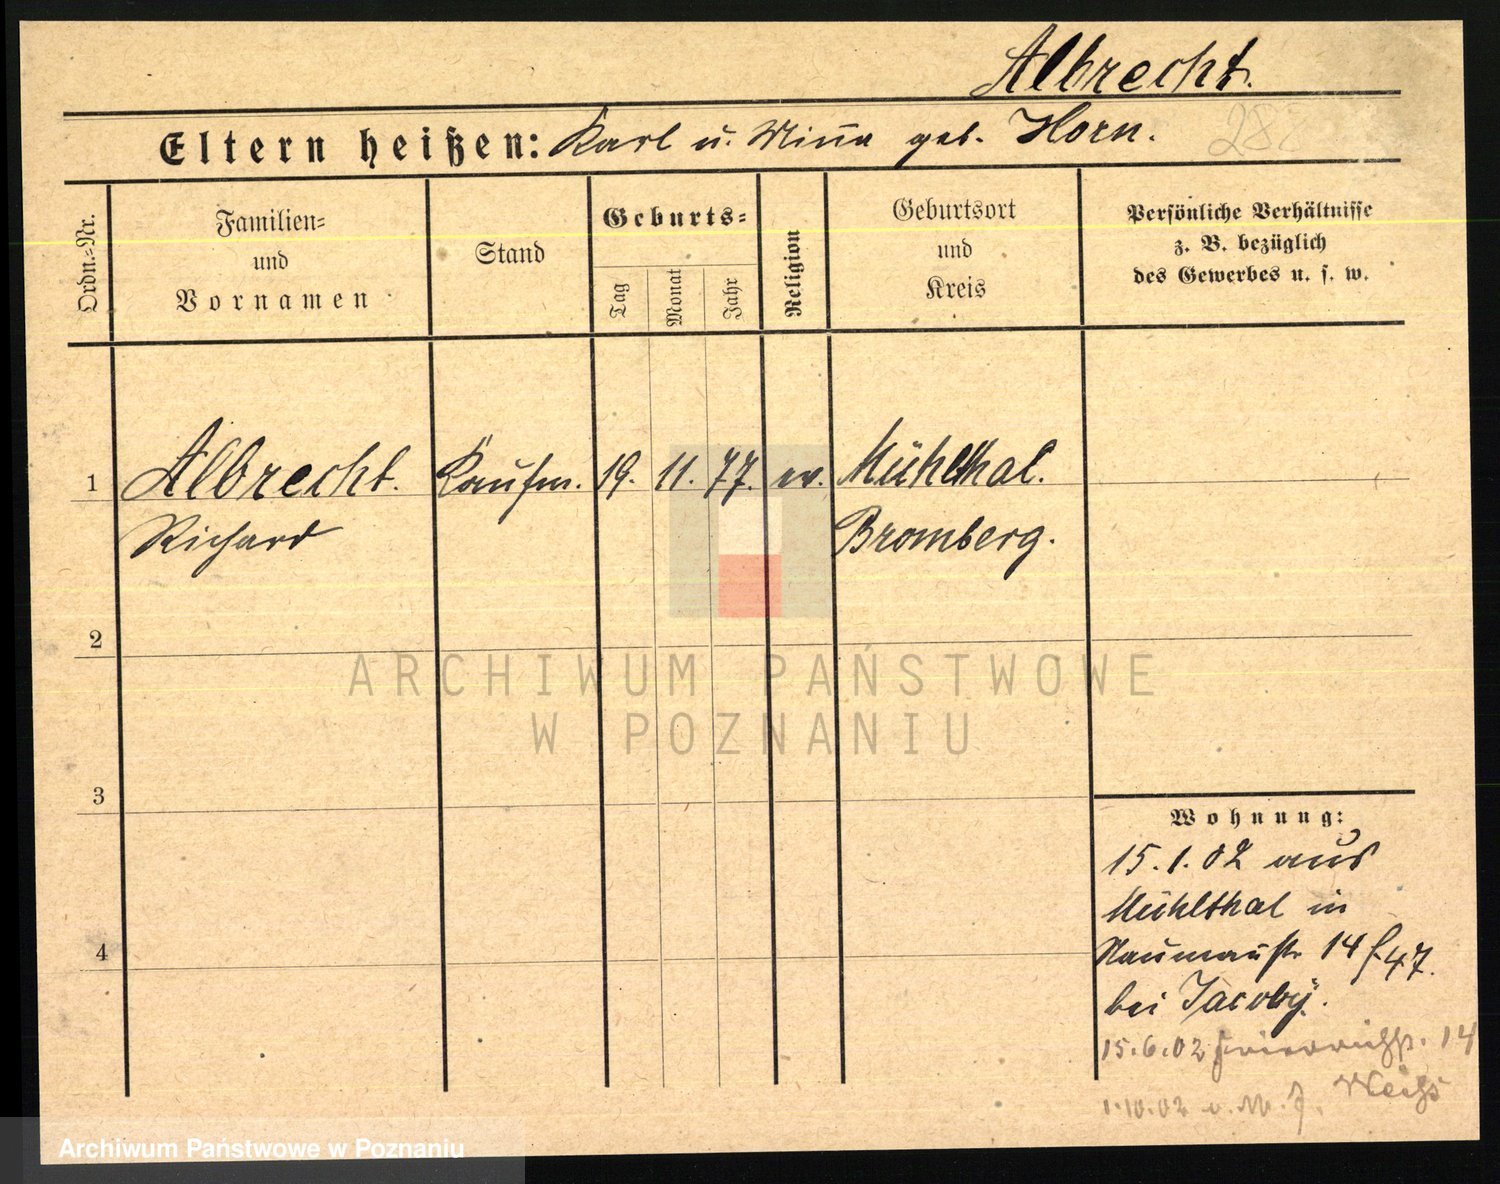 Albrecht.
Eltern heißen: Karl u. Mina geb. Horn.
28
Ordn.-Nr.
Familien-
und
Vornamen
Stand
Geburts-
Tag
Monat
Jahr
Religion
Geburtsort
und
Kreis
Persönliche Verhältnisse
z. B. bezüglich
des Gewerbes u. s. w.
1 Albrecht. Kaufm. 19. 11. 77. ev. Mühlthal.
Richard Bromberg.
2
ARCHIWUM PAŃSTWOWE
W POZNANIU
3
Wohnung:
15.1.02 aus
Mühlthal in
4
Naumanstr 14 f 47.
bei Jacoby.
15.6.02 Friedrichstr. 14
Weihs
1.10.02 v. M. J.
Archiwum Państwowe w Poznaniu